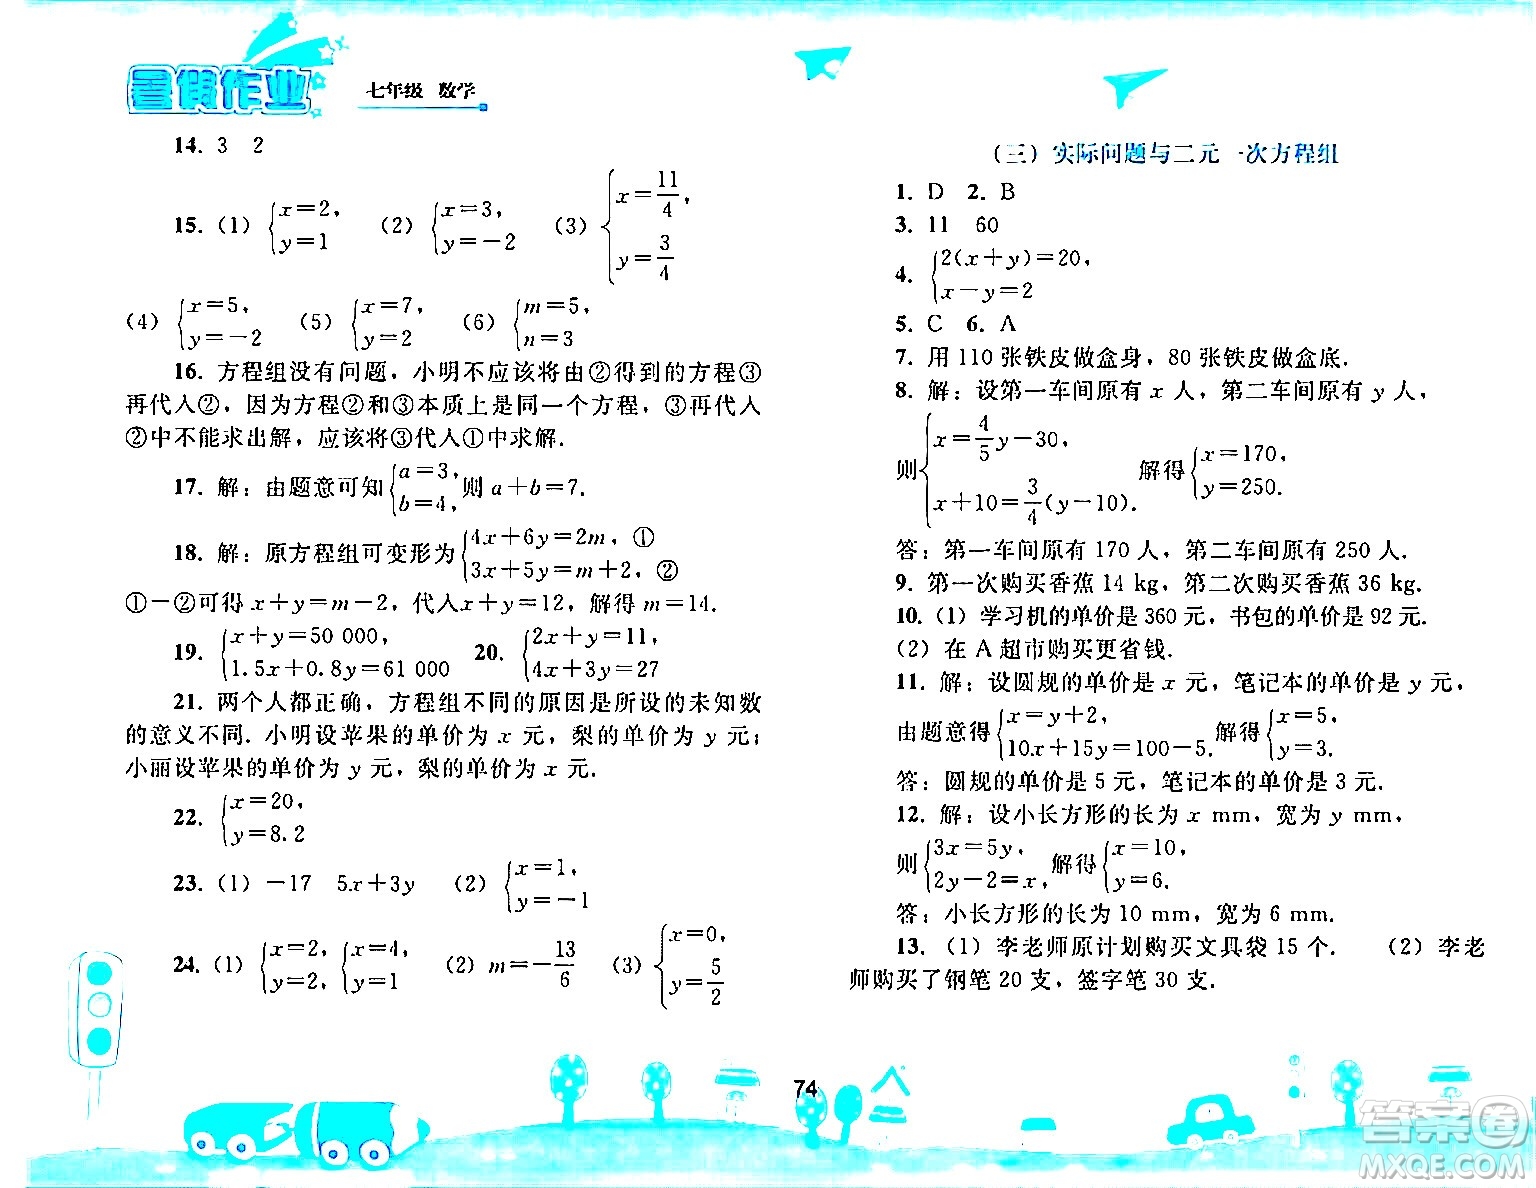 暑假作业 七年级 数学
14. 3 2
15. (1) {x=2, y=1 (2) {x=3, y=-2 (3) {x=11/4, y=3/4
(4) {x=5, y=-2 (5) {x=7, y=2 (6) {m=5, n=3
16. 方程组没有问题，小明不应该将由②得到的方程③
再代人②，因为方程②和③本质上是同一个方程，③再代人
②中不能求出解，应该将③代人①中求解.
17. 解：由题意可知{a=3, b=4, 则 a+b=7.
18. 解：原方程组可变形为{4x+6y=2m, ① 3x+5y=m+2, ②
①-②可得 x+y=m-2，代人x+y=12，解得 m=14.
19. {x+y=50 000, 1.5x+0.8y=61 000 20. {2x+y=11, 4x+3y=27
21. 两个人都正确，方程组不同的原因是所设的未知数
的意义不同. 小明设苹果的单价为 x 元，梨的单价为 y 元；
小丽设苹果的单价为 y 元，梨的单价为 x 元.
22. {x=20, y=8.2
23. (1) -17 5x+3y (2) {x=1, y=-1
24. (1) {x=2, y=2, {x=4, y=1 (2) m=-13/6 (3) {x=0, y=5/2
（三）实际问题与二元一次方程组
1. D 2. B
3. 11 60
4. {2(x+y)=20, x-y=2
5. C 6. A
7. 用 110 张铁皮做盒身，80 张铁皮做盒底.
8. 解：设第一车间原有 x 人，第二车间原有 y 人，
则{x=4/5y-30, x+10=3/4(y-10). 解得{x=170, y=250.
答：第一车间原有 170 人，第二车间原有 250 人.
9. 第一次购买香蕉 14 kg，第二次购买香蕉 36 kg.
10. (1) 学习机的单价是 360 元，书包的单价是 92 元.
(2) 在 A 超市购买更省钱.
11. 解：设圆规的单价是 x 元，笔记本的单价是 y 元，
由题意得{x=y+2, 10x+15y=100-5. 解得{x=5, y=3.
答：圆规的单价是 5 元，笔记本的单价是 3 元.
12. 解：设小长方形的长为 x mm，宽为 y mm，
则{3x=5y, 2y-2=x, 解得{x=10, y=6.
答：小长方形的长为 10 mm，宽为 6 mm.
13. (1) 李老师原计划购买文具袋 15 个. (2) 李老
师购买了钢笔 20 支，签字笔 30 支.
74
答案圈
MXQE.COM